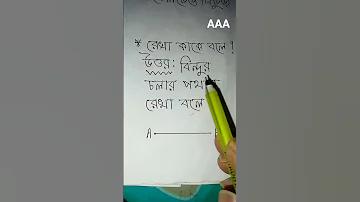 AAA
* রেখা কাকে বলে !
উত্তর : বিন্দুর
চলার পথকে
রেখা বলে
A